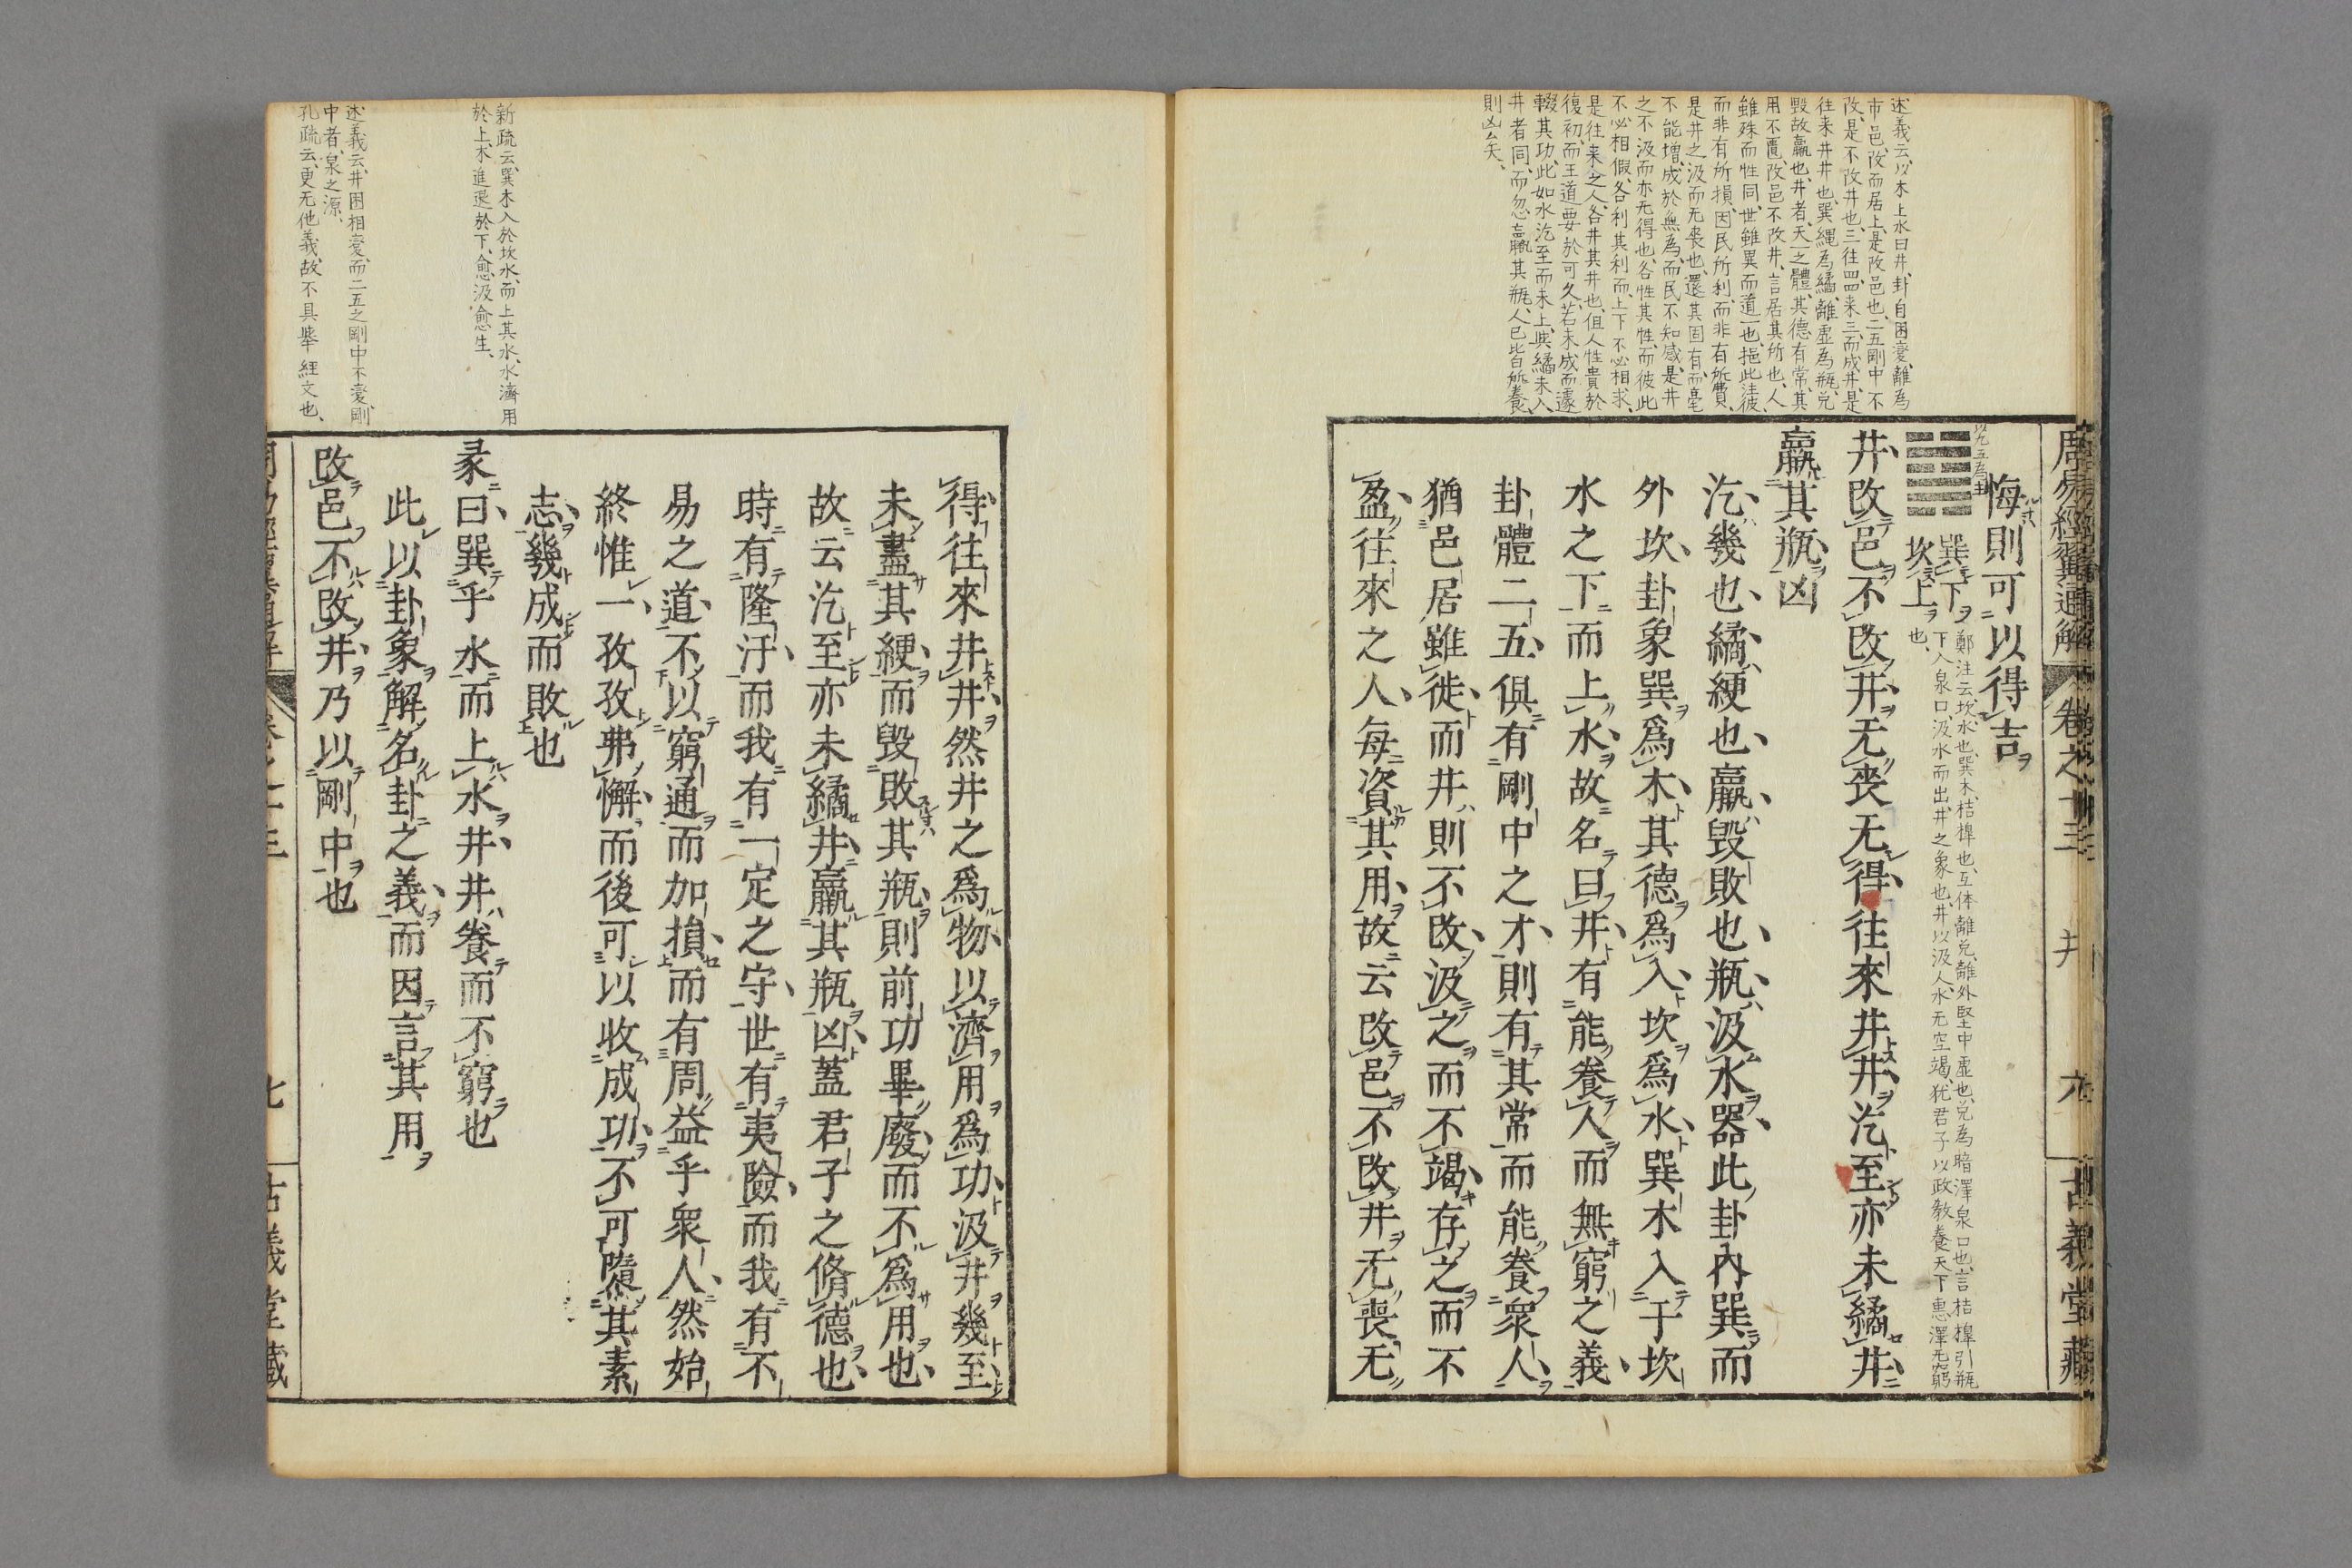 述義云、以木上水曰井、卦自困変、離為
市邑、改而居上、是改邑也、二五剛中不
改、是不改井也、三往四、四来三、而成井、是
往来井井也、巽縄為繘、離虚為瓶、兌
毀故羸也、井者、天一之體、其德有常、其
用不匱、改邑不改井、言居其所也、人
雖殊而性同、世雖異而道一也、挹此注彼、
而非有所損、因民所利、而非有所費、
是井之汲而无喪也、還其固有、而毫
不能増、成於無為、而民不知感、是井
之不汲而亦无得也、各性其性、而彼此
不必相假、各利其利、而上下不必相求、
是往来之人、各井其井也、但人性貴於
復初、而王道要於可久、若未成而遽
輟其功、此如水汔至而未上、與繘未入
井者同、而忽羸其瓶、人已皆所養、
則凶矣、
周易經翼通解 卷之十三 井 六 古義堂藏
悔則可以得吉
以九五為主
巽下
坎上
鄭注云、坎水也、巽木、桔槹也、互体離兌、離外堅中虚、瓶也、兌為暗澤、泉口也、言桔槹引瓶
下入泉口、汲水而出、井之象也、井以汲人、水无空竭、犹君子以政敎養天下、惠澤无窮
也、
井改邑不改井无喪无得往來井井汔至亦未繘井
羸其瓶凶
汔幾也繘綆也羸毀敗也瓶汲水器此卦內巽而
外坎卦象巽爲木其德爲入坎爲水巽木入于坎
水之下而上水故名曰井有能養人而無窮之義
卦體二五俱有剛中之才則有其常而能養衆人
猶邑居雖徙而井則不改汲之而不竭存之而不
盈往來之人每資其用故云改邑不改井无喪无
新疏云、巽木入於坎水、而上其水、水濟用
於上、木進退於下、愈汲愈生、
述義云、井困相変、而二五之剛中不変、剛
中者、泉之源、
孔疏云、更无他義、故不具舉經文也、
得往來井井然井之爲物以濟用爲功汲井幾至
未盡其綆而毀敗其瓶則前功畢廢而不爲用也
故云汔至亦未繘井羸其瓶凶蓋君子之脩德也
時有隆汙而我有一定之守世有夷險而我有不
易之道不以窮通而加損而有周益乎衆人然始
終惟一孜孜弗懈而後可以收成功不可隳其素
志幾成而敗也
彖曰巽乎水而上水井井養而不窮也
此以卦象解名卦之義而因言其用
改邑不改井乃以剛中也